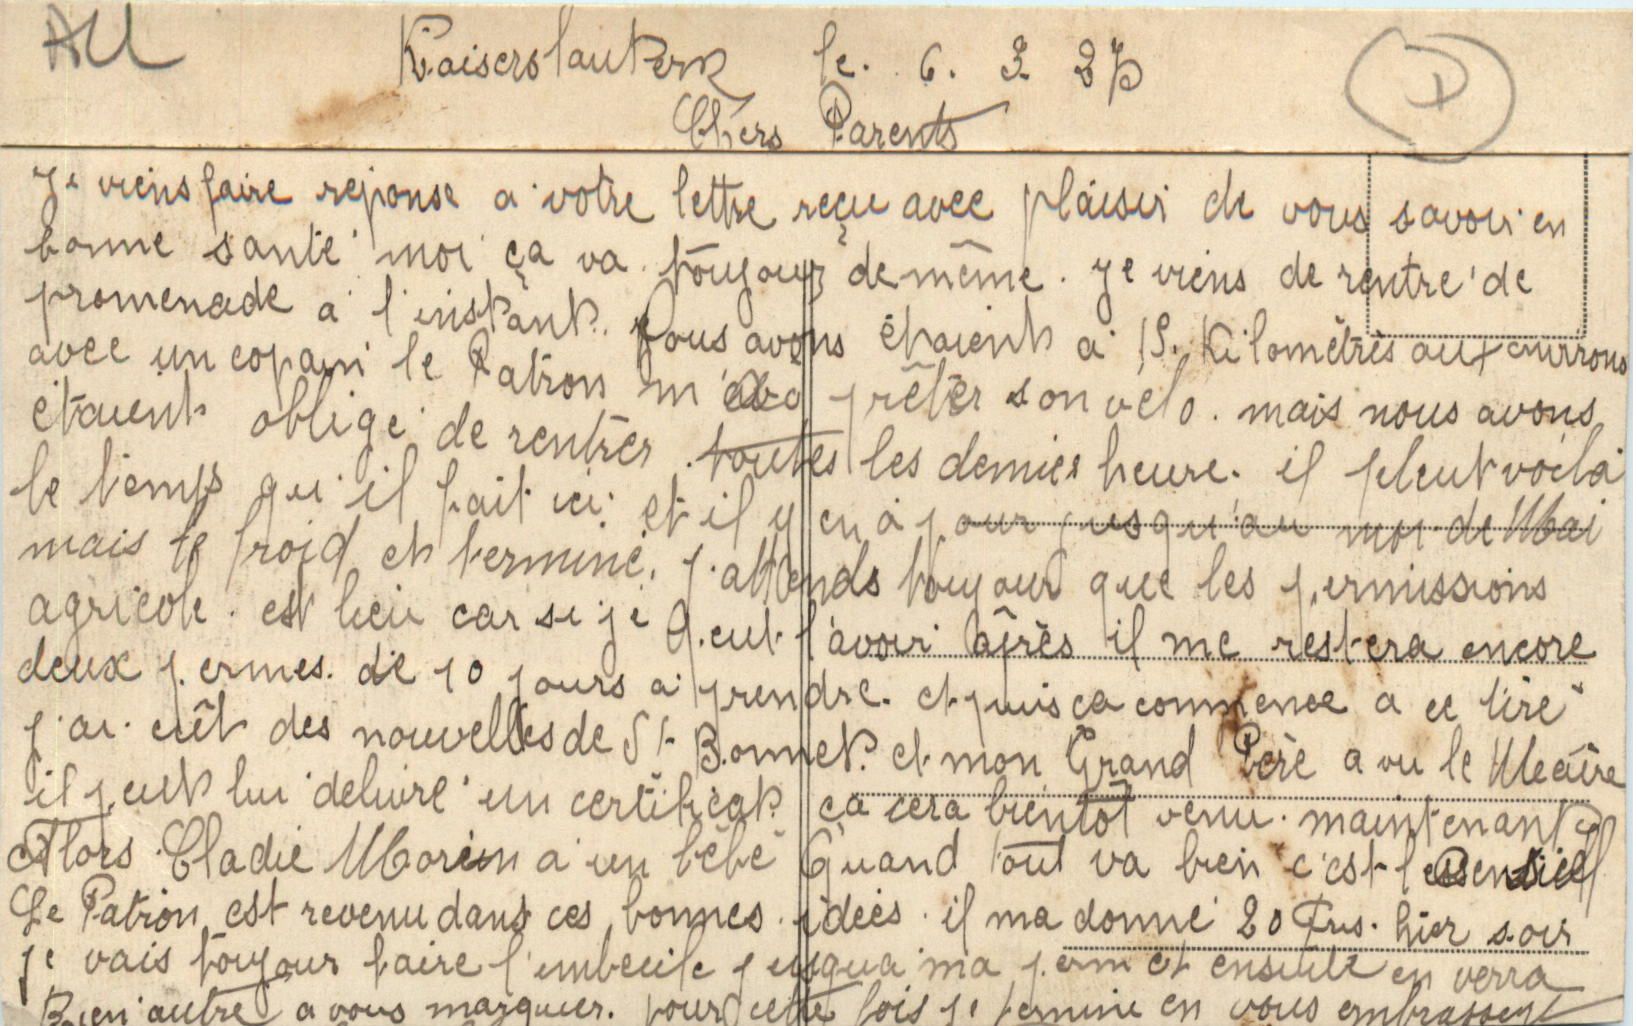 AU
Kaiserslautern le. 6. 3. 27
D
Chers Parents
Je viens faire reponse a votre lettre reçu avec plaisir de vous savoir en
bonne santé moi ça va toujours de même. je viens de rentre de
promenade a l'instant. Nous avons étaient a 15. Kilomêtrès aux envirrons
avec un copain le Patron m'a prêter son vélo. mais nous avons
étaient obligé de rentrer. toutes les demies heure. il pleut voila
le temps qu'il fait ici et il y en à pour jusqu'au moi de Mai
mais le froid et terminé. j'attends toujour que les permissions
agricole. est lieu car si je peut l'avoir après il me restera encore
deux permes. de 10 jours a prendre. et puis ca commence a ce tiré
j'ai eût des nouvelles de St Bonnet. et mon Grand Père a vu le Maire
il peut lui délivré un certificat. ça cera bientôt venu. maintenant
Alors Cladie Morin a un bébé Quand tout va bien c'est l'essensiell
Le Patron est revenu dans ces bonnes idées. il ma donné 20 Frs. hier soir
je vais toujour faire l'imbecile jusqua ma perm et ensuite en verra
Rien autre a vous marquer. pour cette fois je termine en vous embrassent